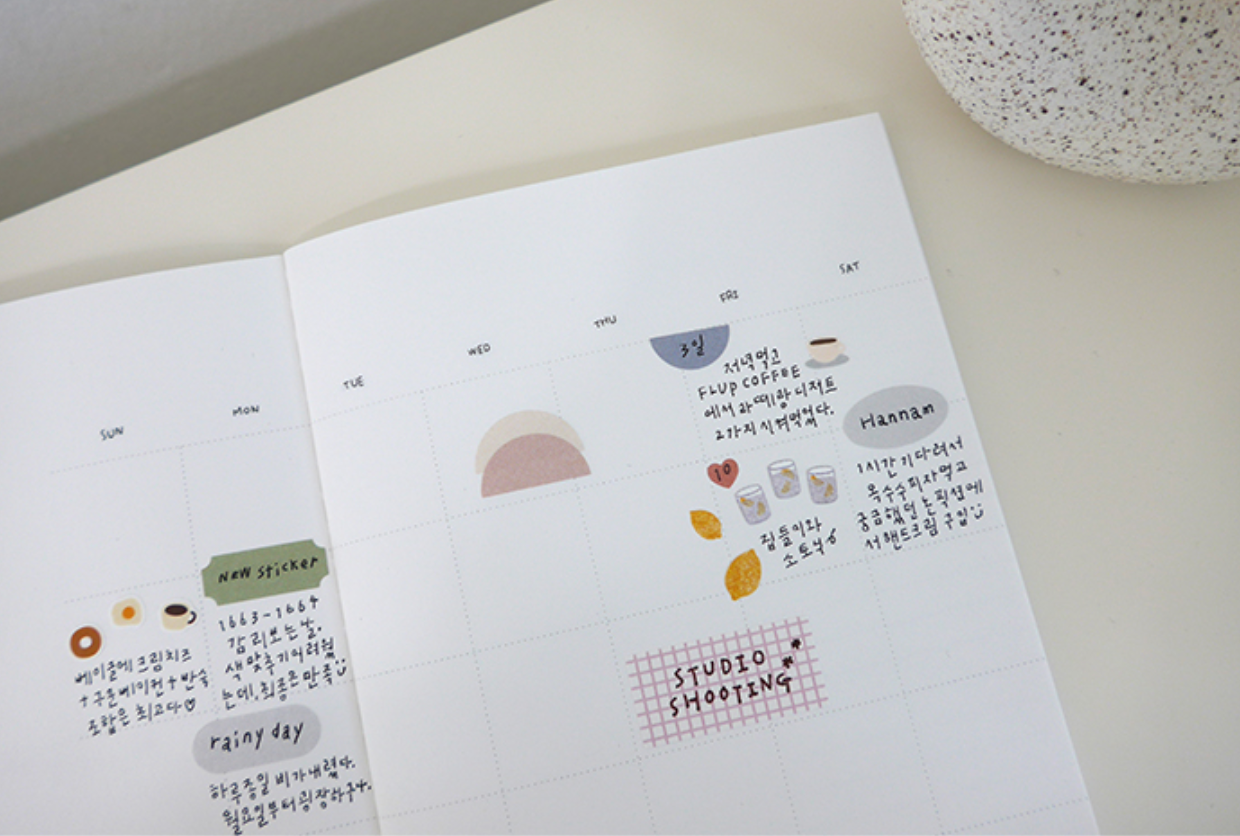 SUN
MON
TUE
WED
THU
FRI
SAT
3일
저녁먹고
FLUP COFFEE
에서 라떼랑 디저트
2가지 시켜먹었다.
Hannam
1시간 기다려서
옥수수피자먹고
궁금했던 논픽션에
서 핸드크림 구입
10
집들이와
소토닉
NEW Sticker
1663-1664
감리보는날.
색 맞추기 어려웠
는데, 최종은 만족
베이글에 크림치즈
+구운베이컨+반숙
조합은 최고다♡
STUDIO
SHOOTING
rainy day
하루종일 비가내렸다.
월요일부터 굉장하구나.